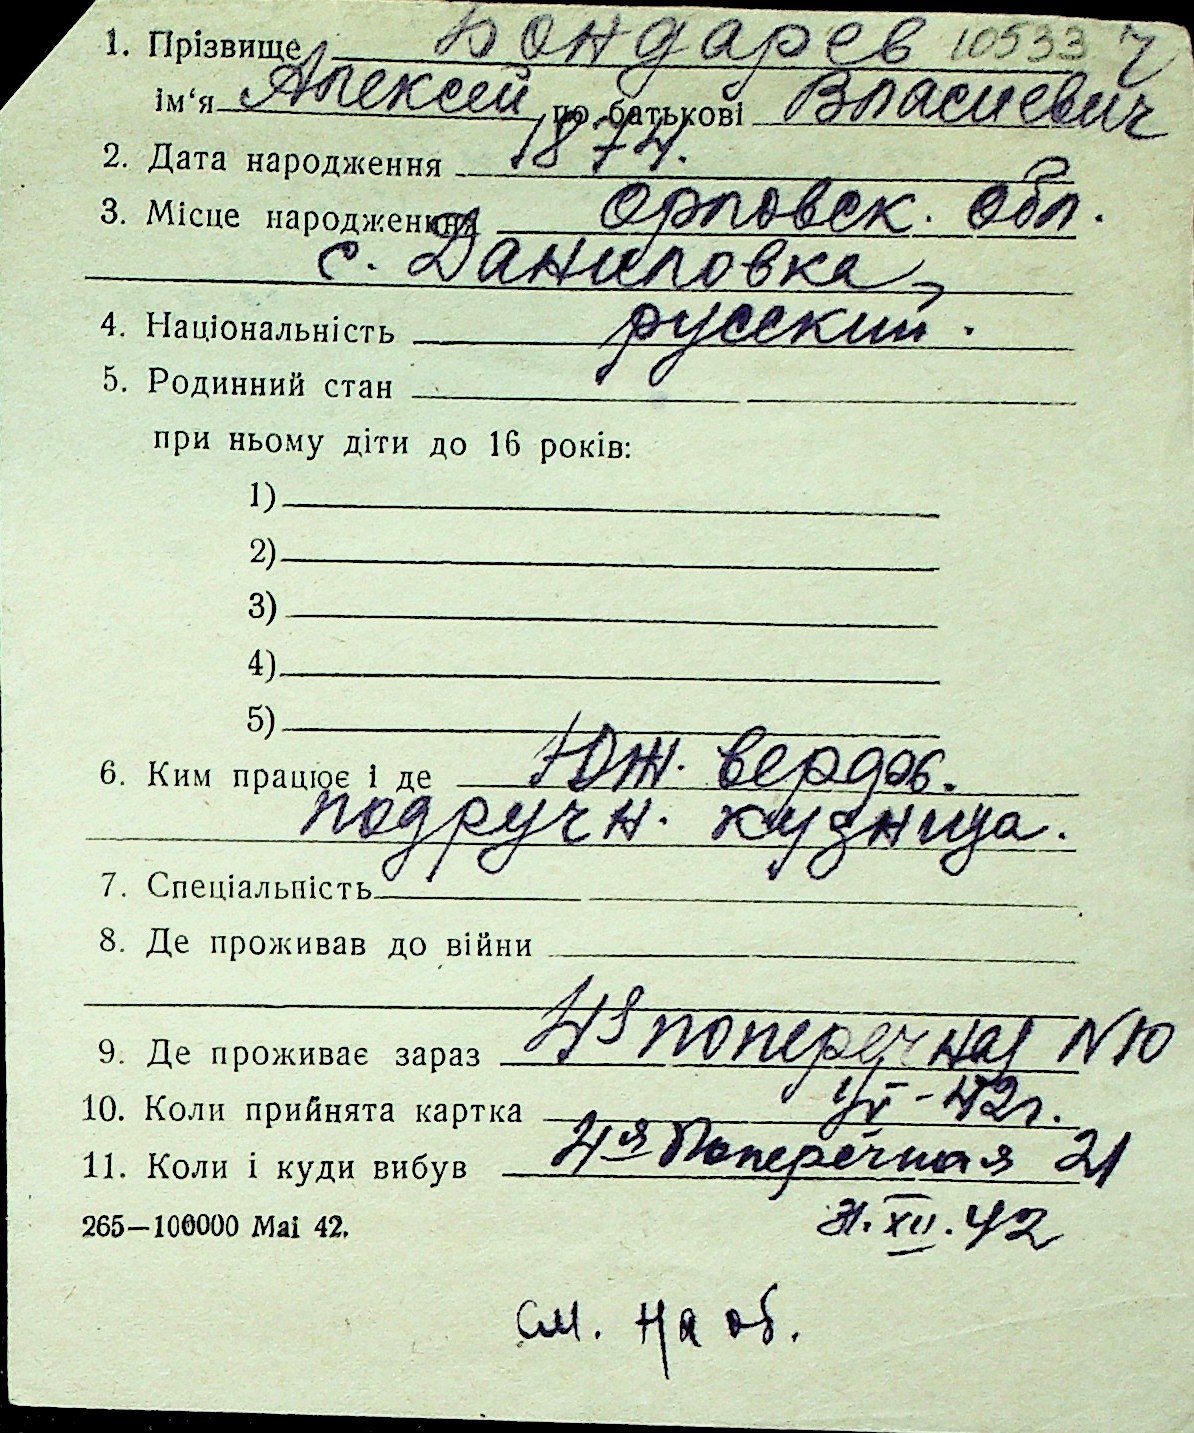 1. Прізвище Бондарев 10533 Ч
ім‘я Алексей по батькові Власиевич
2. Дата народження 1874.
3. Місце народження Орловск. обл.
с. Даниловка,
4. Національність русский.
5. Родинний стан
при ньому діти до 16 років:
1)
2)
3)
4)
5)
6. Ким працює і де Юж. вердов.
подручн. кузнеца.
7. Спеціальність
8. Де проживав до війни
9. Де проживає зараз 4я поперечная N10
10. Коли прийнята картка V-42г.
11. Коли і куди вибув 4я Поперечная 21
265—100000 Маі 42. 31.XII.42
См. на об.